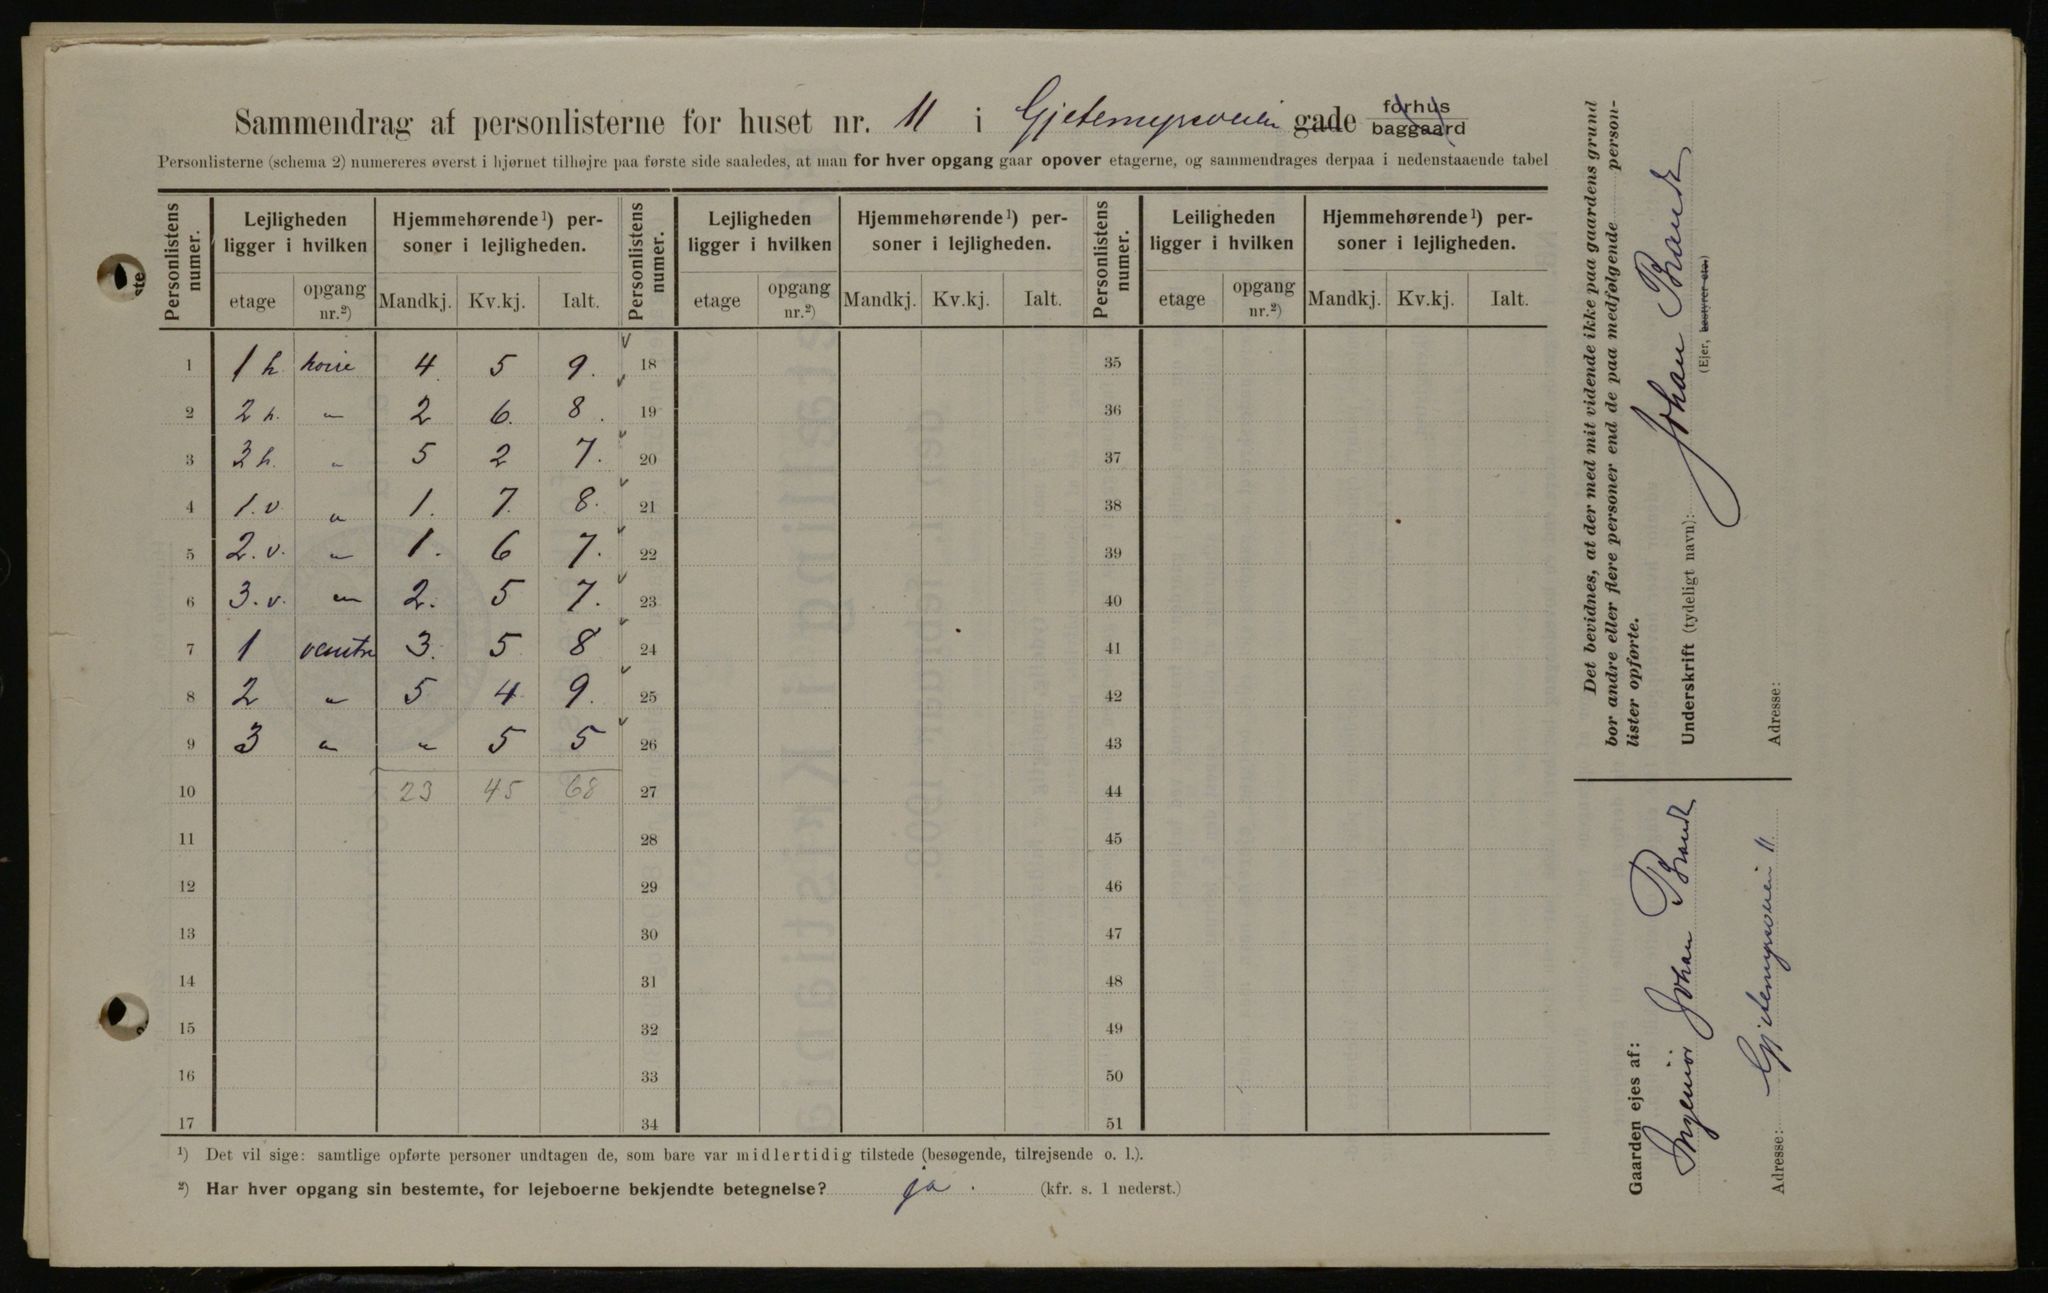 Sammendrag af personlisterne for huset nr. 11 i Gjetemyrsveien gade forhus baggaard
Personlisterne (schema 2) numereres øverst i hjørnet tilhøjre paa første side saaledes, at man for hver opgang gaar opover etagerne, og sammendrages derpaa i nedenstaaende tabel
Personlistens numer. Lejligheden ligger i hvilken Hjemmehørende¹) personer i lejligheden. Personlistens numer. Lejligheden ligger i hvilken Hjemmehørende¹) personer i lejligheden. Personlistens numer. Leiligheden ligger i hvilken Hjemmehørende¹) personer i lejligheden.
etage opgang nr.²) Mandkj. Kv.kj. Ialt. etage opgang nr.²) Mandkj. Kv.kj. Ialt. etage opgang nr.²) Mandkj. Kv.kj. Ialt.
1 1 h. hoire 4 5 9. 18 35
2 2 h. " 2 6. 8. 19 36
3 3 h. " 5 2 7. 20 37
4 1. v. " 1. 7. 8. 21 38
5 2. v. " 1. 6 7. 22 39
6 3. v. " 2. 5 7. 23 40
7 1 venstre 3. 5 8 24 41
8 2 " 5 4 9. 25 42
9 3 " " 5 5 26 43
10 23 45 68 27 44
11 28 45
12 29 46
13 30 47
14 31 48
15 32 49
16 33 50
17 34 51
¹) Det vil sige: samtlige opførte personer undtagen de, som bare var midlertidig tilstede (besøgende, tilrejsende o. l.).
²) Har hver opgang sin bestemte, for lejeboerne bekjendte betegnelse? ja. (kfr. s. 1 nederst.)
Det bevidnes, at der med mit vidende ikke paa gaardens grund
bor andre eller flere personer end de paa medfølgende personlister opførte.
Underskrift (tydeligt navn): Johan Brandt
(Ejer, bestyrer etc.)
Adresse:
Gaarden ejes af:
Ingeniør Johan Brandt
Adresse: Gjetemyrsveien 11